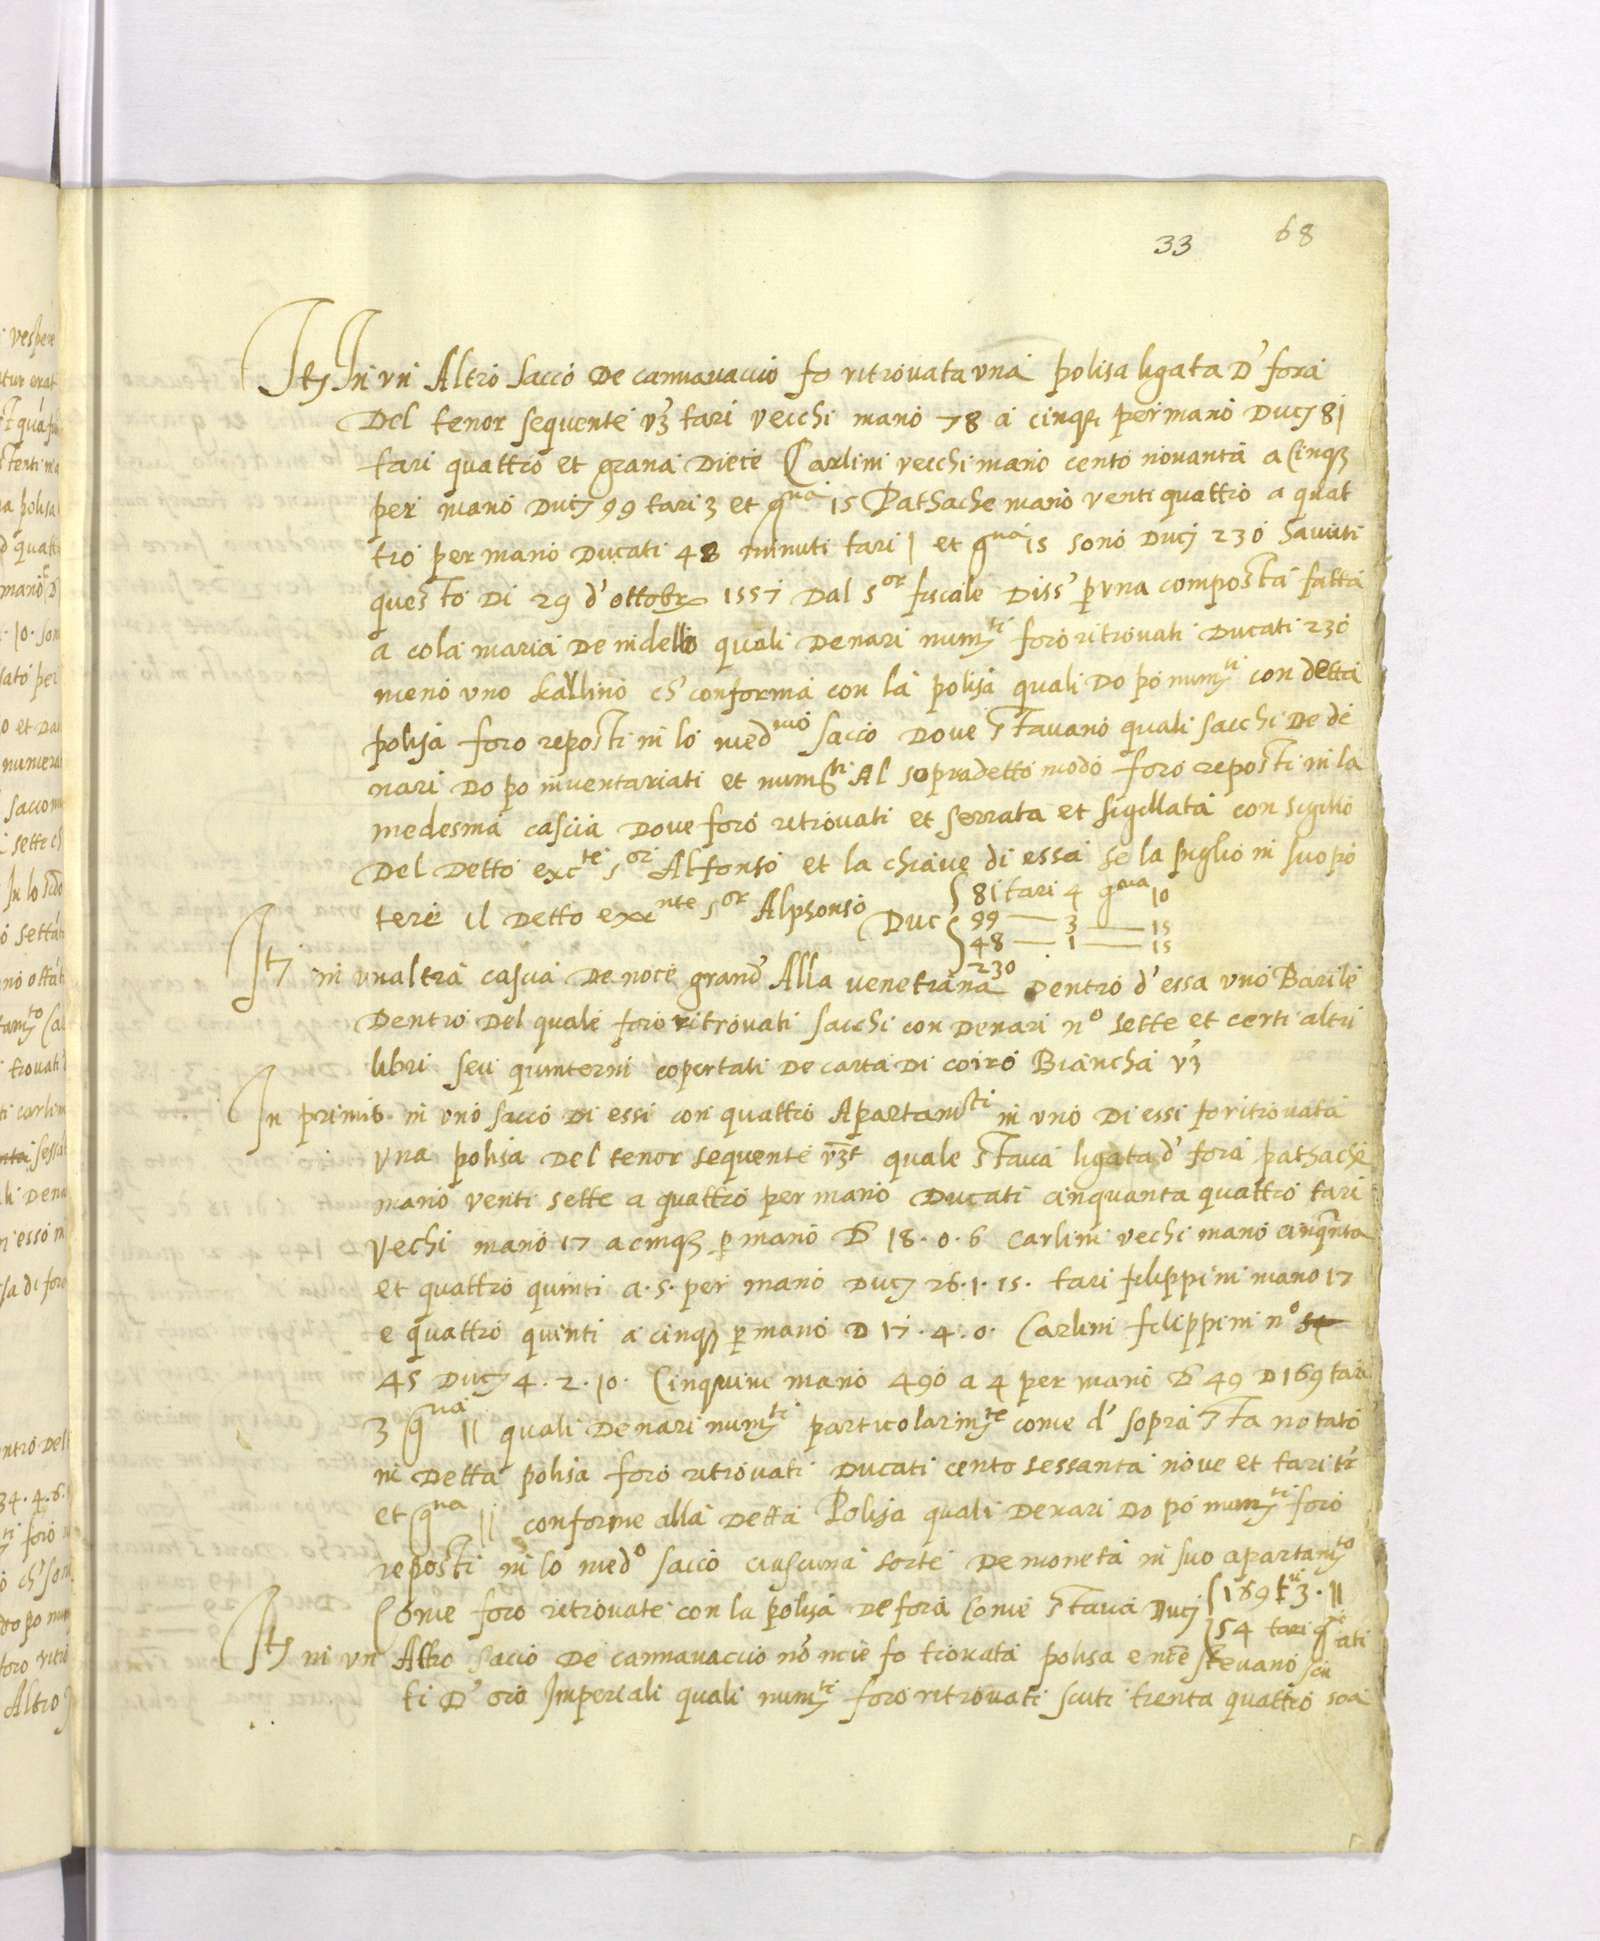 33 68
Itȝ In un Altro sacco De cannavaccio fo ritrovata una polisa ligata D' fora
Del tenor sequente vȝ tari vecchi mano 78 a cinqȝ per mano Ducȝ 81
tari quattro et grana Diece Carlini vecchi mano cento novanta a Cinqȝ
per mano Ducȝ 99 tari 3 et gna 15 Pathache mano venti quattro a quat
tro per mano Ducati 48 minuti tari 1 et gna 15 sono Ducj 230 havuti
questo Di 29 d'ottobr 1557 Dal Sor fiscale Diss' p una composta fatta
a cola maria De nidello quali Denari numȝti foro ritrovati Ducati 230
meno uno kallino ch' conforma con la polisa quali Do po numȝti con detta
polisa foro reposti in lo medmo sacco Dove stavano quali sacchi De de
nari Do po inventariati et numȝti Al sopradetto modo foro reposti in la
medesma cascia Dove foro ritrovati et serrata et sigillata con sigillo
Del Detto excte sor Alfonso et la chiave di essa se la piglio in suo po
tere il Detto excnte sor Alphonso Duc 81 tari 4 gna 10
99 — 3 — 15
48 — 1 — 15
230
Itȝ in unaltra cascia De noce grand' Alla venetiana Dentro d'essa uno Barile
Dentro Del quale foro ritrovati sacchi con Denari no sette et certi altri
libri seu quinterni copertati De carta Di coiro Biancha vȝ
In primis in uno sacco Di essi con quattro Apartamti in uno Di essi fo ritrovata
Una polisa Del tenor sequente vȝt quale stava ligata d' fora pathache
mano venti sette a quattro per mano Ducati cinquanta quattro tari
Vechi mano 17 a cinqȝ p mano D 18.0.6 Carlini vechi mano cinqnta
et quattro quinti a.5. per mano Ducȝ 26.1.15. tari filippini mano 17
e quattro quinti a cinqȝ p mano D 17.4.0. Carlini filippini no 54
45 Ducȝ 4.2.10. Cinquine mano 490 a 4 per mano D 49 D 169 tari
3 gna 11 quali Denari numȝti particolarmȝte come d' sopra sta notato
in Detta polisa foro ritrovati Ducati cento sessanta nove et tari tr'
et gna 11 conforme alla Detta Polisa quali Denari Do po numȝti foro
reposti in lo medo sacco ciascuna sorte De moneta in suo apartamȝto
Come foro ritrovate con la polisa De fora Come stava Ducj 169 tri 3.11
54 tari
Itȝ in un Altro sacco De cannavaccio no' ncie fo trovata polisa e nce stevano scu
ti D' oro Imperiali quali numȝti foro ritrovati scuti trenta quattro